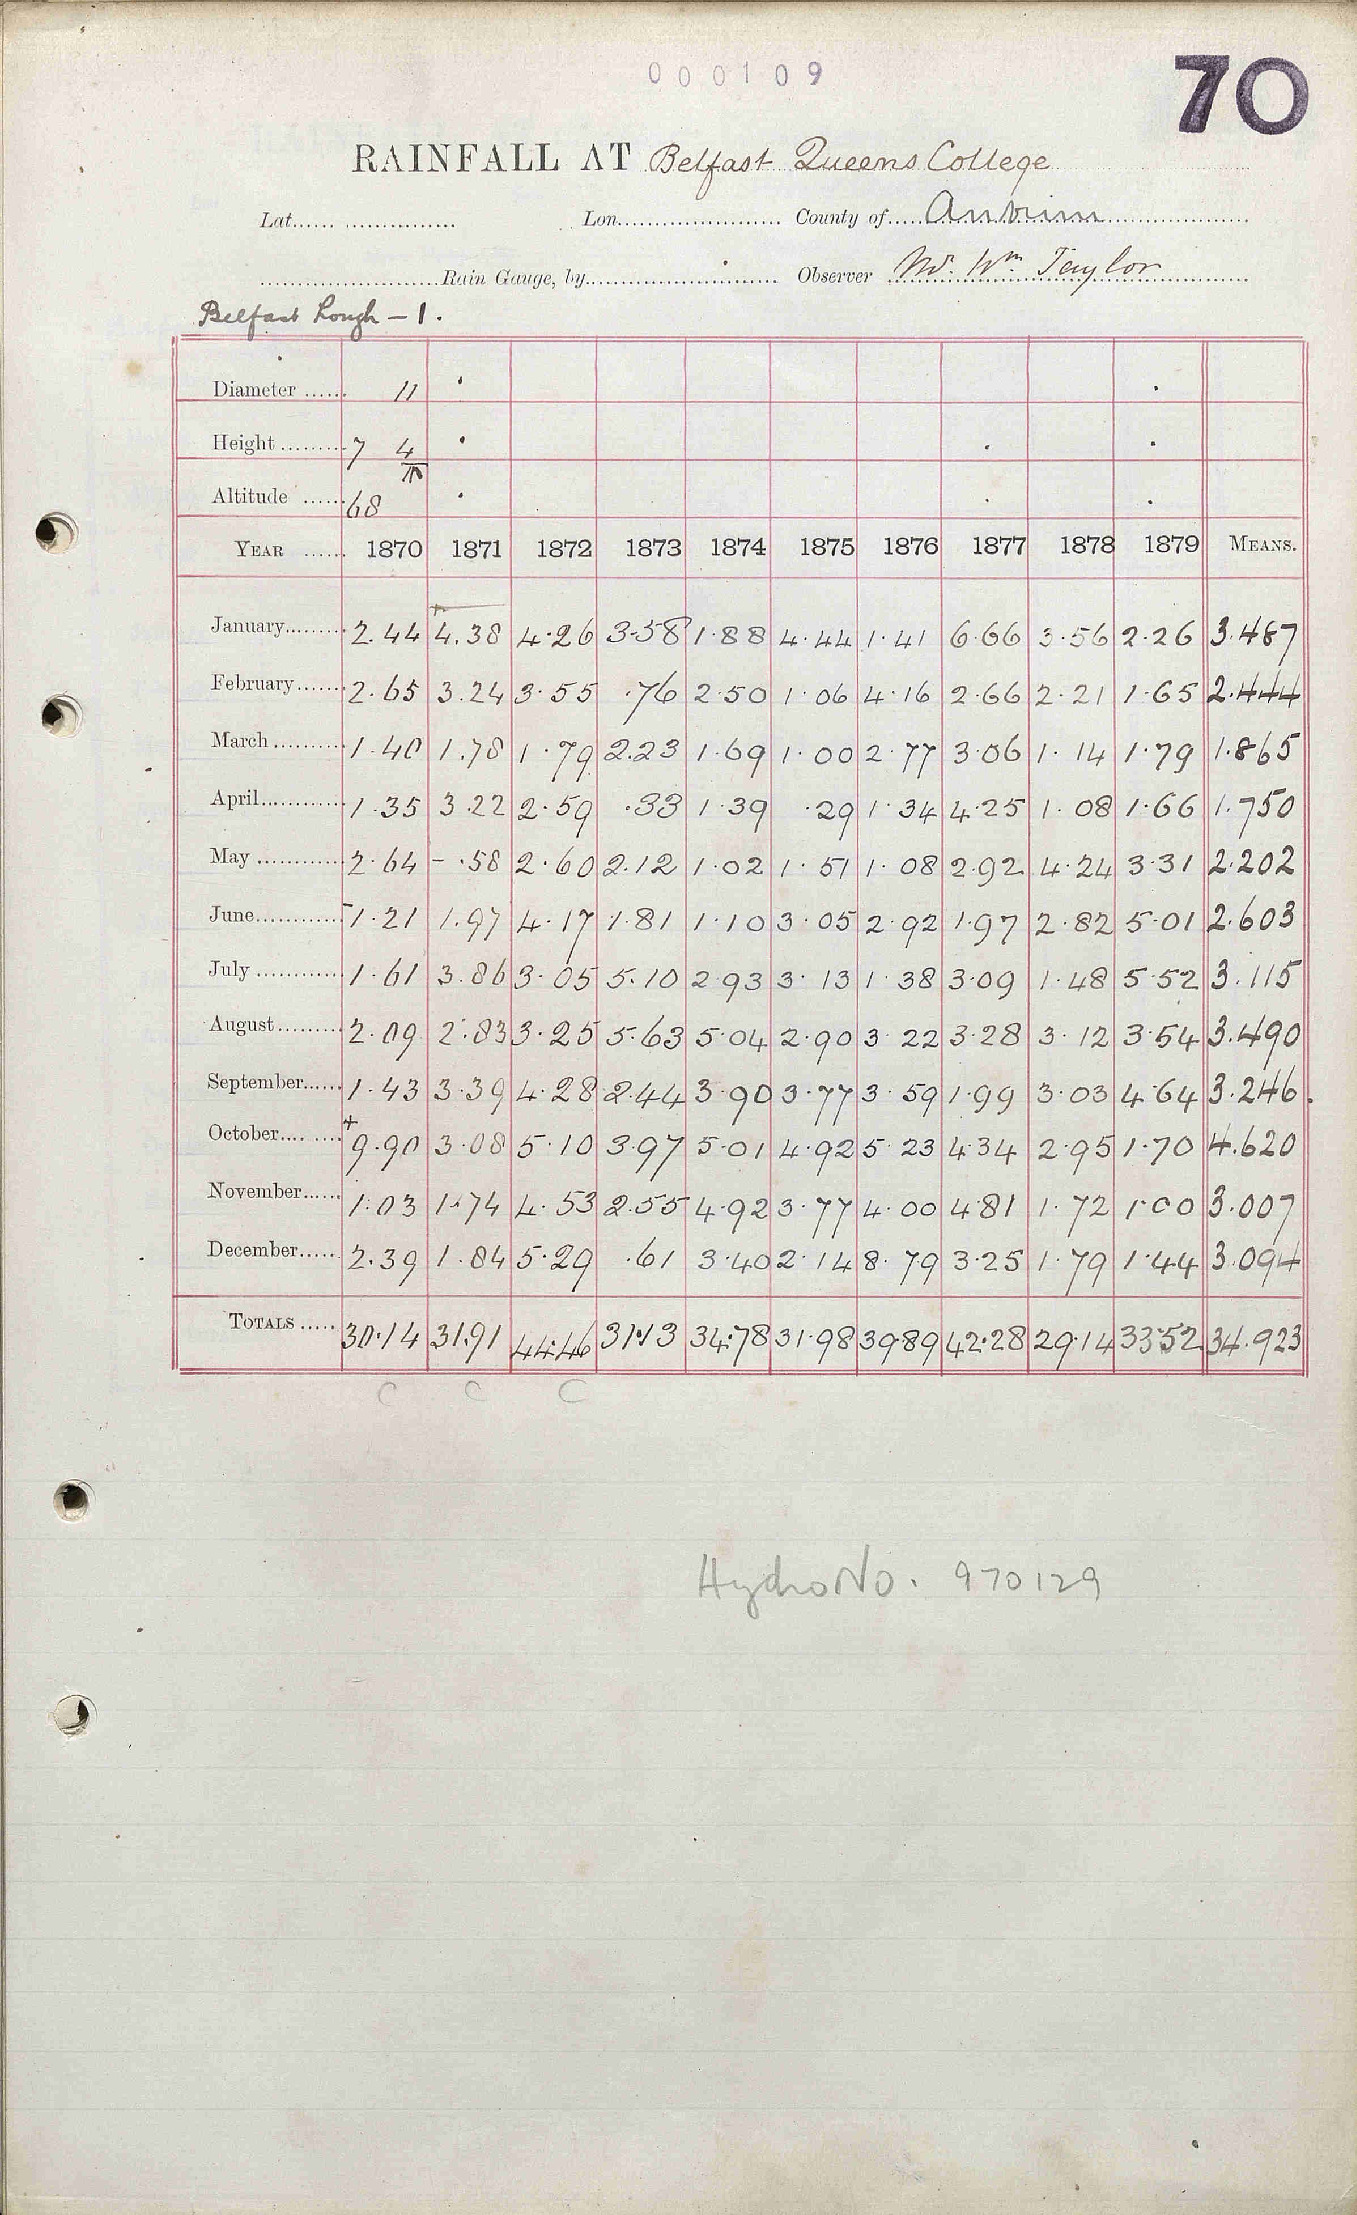 000109
70
RAINFALL AT Belfast Queens College
Lat. Lon. County of Antrim
Rain Gauge, by Observer Mr. Wm. Taylor
Belfast Lough - 1.
Diameter 11
Height 7 4
Altitude 68
YEAR 1870 1871 1872 1873 1874 1875 1876 1877 1878 1879 MEANS.
January 2.44 4.38 4.26 3.58 1.88 4.44 1.41 6.66 3.56 2.26 3.487
February 2.65 3.24 3.55 .76 2.50 1.06 4.16 2.66 2.21 1.65 2.444
March 1.40 1.78 1.79 2.23 1.69 1.00 2.77 3.06 1.14 1.79 1.865
April 1.35 3.22 2.59 .33 1.39 .29 1.34 4.25 1.08 1.66 1.750
May 2.64 - .58 2.60 2.12 1.02 1.51 1.08 2.92 4.24 3.31 2.202
June 1.21 1.97 4.17 1.81 1.10 3.05 2.92 1.97 2.82 5.01 2.603
July 1.61 3.86 3.05 5.10 2.93 3.13 1.38 3.09 1.48 5.52 3.115
August 2.09 2.83 3.25 5.63 5.04 2.90 3.22 3.28 3.12 3.54 3.490
September 1.43 3.39 4.28 2.44 3.90 3.77 3.59 1.99 3.03 4.64 3.246
October + 9.90 3.08 5.10 3.97 5.01 4.92 5.23 4.34 2.95 1.70 4.620
November 1.03 1.74 4.53 2.55 4.92 3.77 4.00 4.81 1.72 1.00 3.007
December 2.39 1.84 5.29 .61 3.40 2.14 8.79 3.25 1.79 1.44 3.094
TOTALS 30.14 31.91 44.46 31.13 34.78 31.98 39.89 42.28 29.14 33.52 34.923
C C C
Hydro No. 970129